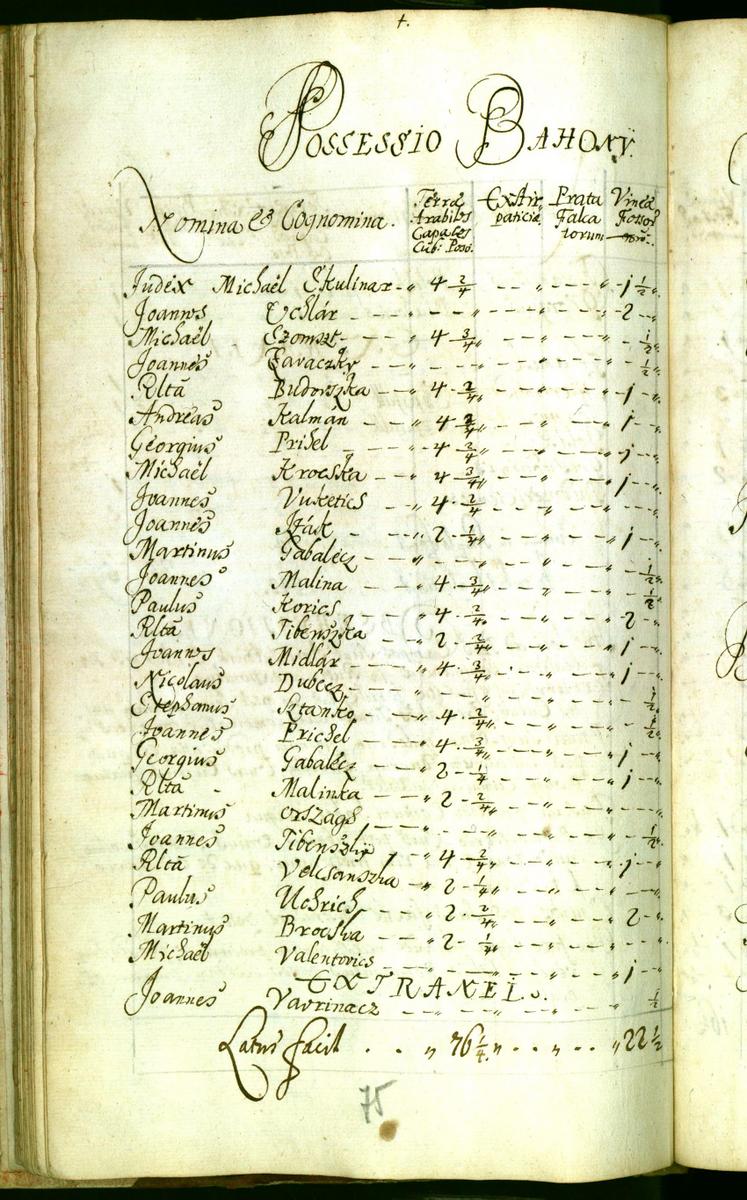 POSSESSIO BAHONY.
Nomina & Cognomina. Terræ Arabiles Capaces Cub: Poso. Extirpaticiæ Prata Falcatorum Vineæ Fossor
Judex Michaël Skulinar - " 4 2/4 - - " - - " - 1 1/2 "
Joannes Uchlár - " - - - " - - " - 2 - "
Michaël Szomszt - - " 4 3/4 " - - " - - " - 1/2 "
Joannes - - " - - " - - " - - 1/2 "
Rltã Budovszka - " 4 2/4 " - - " - - " 1 - "
Andreas Kalmán - - " 4 2/4 " - - " - - " 1 - "
Georgius Prihel - - " 4 2/4 " - - " - - " 1 - "
Michaël Krocska - - " 4 3/4 " - - " - - " 1 - "
Joannes Vuketics - - " 4 2/4 - - " - - " - - "
Joannes - - " 2 1/4 " - - " - - " 1 - "
Martinus Gabalecz - - " - - " - - " - - 1/2 "
Joannes Malina - - " 4 3/4 " - - " - - " 1/2
Paulus Korics - - " 4 2/4 " - - " - - " 2 - "
Rltã Tibenszka - - " 2 2/4 " - - " - - " 1 - "
Joannes Midlár - - " 4 3/4 " - - " - - " 1 - "
Nicolaus Dubecz - - " - - " - - " - - 1/2 "
Stephanus Sztanko - - " 4 2/4 " - - " - - " 1/2 "
Joannes Prichel - - " 4 3/4 " - - " - - " 1 - "
Georgius Gabalecz - - " 2 - 1/4 - - " - - " 1 - "
Rltã - Malinka - - " 2 - 2/4 " - - " - - " - - "
Martinus Országh - - " - - " - - " - - 1/2 "
Joannes - - " 4 - 2/4 " - - " - - " 1 - "
Rltã Velcsanszka - " 2 - 1/4 " - - " - - " - - "
Paulus Uchrich - - " 2 - 2/4 " - - " - - " 2 - "
Martinus Brocska - - " 2 - 1/4 " - - " - - " - - "
Michaël Valentovics - - " - - " - - " 1 - "
EXTRANEI.
Joannes Vavrinacz - - " - - " - - " 1/2
Latus facit . . " 76 1/4 " . . " . . " 22 1/2
75